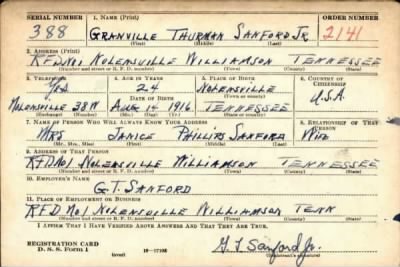 SERIAL NUMBER 1. NAME (Print) ORDER NUMBER
388 GRANVILLE THURMAN SANFORD JR. 2141
(First) (Middle) (Last)
2. ADDRESS (Print)
RFD No1 NOLENSVILLE WILLIAMSON TENNESSEE
(Number and street or R. F. D. number) (Town) (County) (State)
3. TELEPHONE 4. AGE IN YEARS 5. PLACE OF BIRTH 6. COUNTRY OF CITIZENSHIP
24 NOLENSVILLE
DATE OF BIRTH (Town or county)
NOLENSVILLE 38W AUG 14 1916 TENNESSEE U.S.A.
(Exchange) (Number) (Mo.) (Day) (Yr.) (State or country)
7. NAME OF PERSON WHO WILL ALWAYS KNOW YOUR ADDRESS 8. RELATIONSHIP OF THAT PERSON
MRS JANICE PHILLIPS SANFORD WIFE
(Mr., Mrs., Miss) (First) (Middle) (Last)
9. ADDRESS OF THAT PERSON
RFD No1 NOLENSVILLE WILLIAMSON TENNESSEE
(Number and street or R. F. D. number) (Town) (County) (State)
10. EMPLOYER'S NAME
G.T. SANFORD
11. PLACE OF EMPLOYMENT OR BUSINESS
RFD No1 NOLENSVILLE WILLIAMSON TENN
(Number and street or R. F. D. number) (Town) (County) (State)
I AFFIRM THAT I HAVE VERIFIED ABOVE ANSWERS AND THAT THEY ARE TRUE.
REGISTRATION CARD
D. S. S. Form 1 (over) G. T. Sanford Jr.
(Registrant's signature)